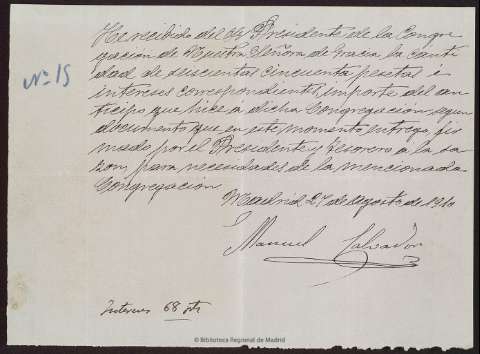 He recibido del Sr Presidente de la Congre
gación de Nuestra Señora de Gracia la canti
Nº 15
dad de doscientas cincuenta pesetas é
intereses correspondientes, importe del an
ticipo que hice á dicha Congregación, segun
documento que en este momento entrego, fir
mado por el Presidente y tesorero a la sa
zon, para necesidades de la mencionada
Congregación
Madrid 27 de Agosto de 1910
Manuel Salvador
Intereses 68 pts
© Biblioteca Regional de Madrid